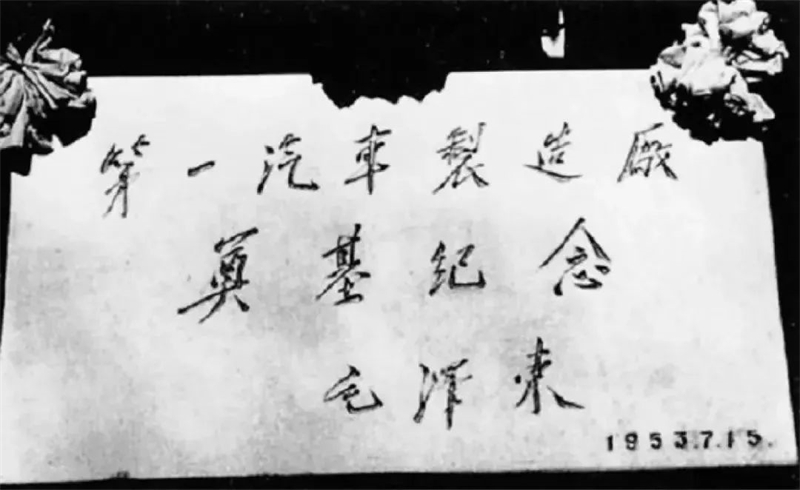 第一汽車製造廠
奠基纪念
毛泽東
1953.7.15.